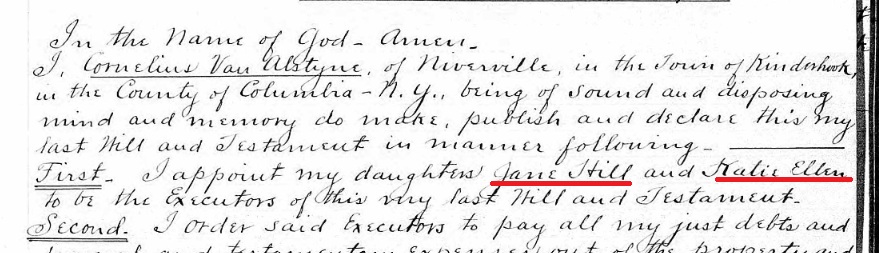 In the Name of God – Amen –
I, Cornelius Van Alstyne, of Niverville, in the Town of Kinderhook,
in the County of Columbia – N.Y., being of sound and disposing
mind and memory do make, publish and declare this my
last Will and Testament in manner following –
First. I appoint my daughters Jane Hill and Katie Ellen
to be the Executors of this my last Will and Testament –
Second. I order said Executors to pay all my just debts and
funeral and testamentary expenses out of the property and